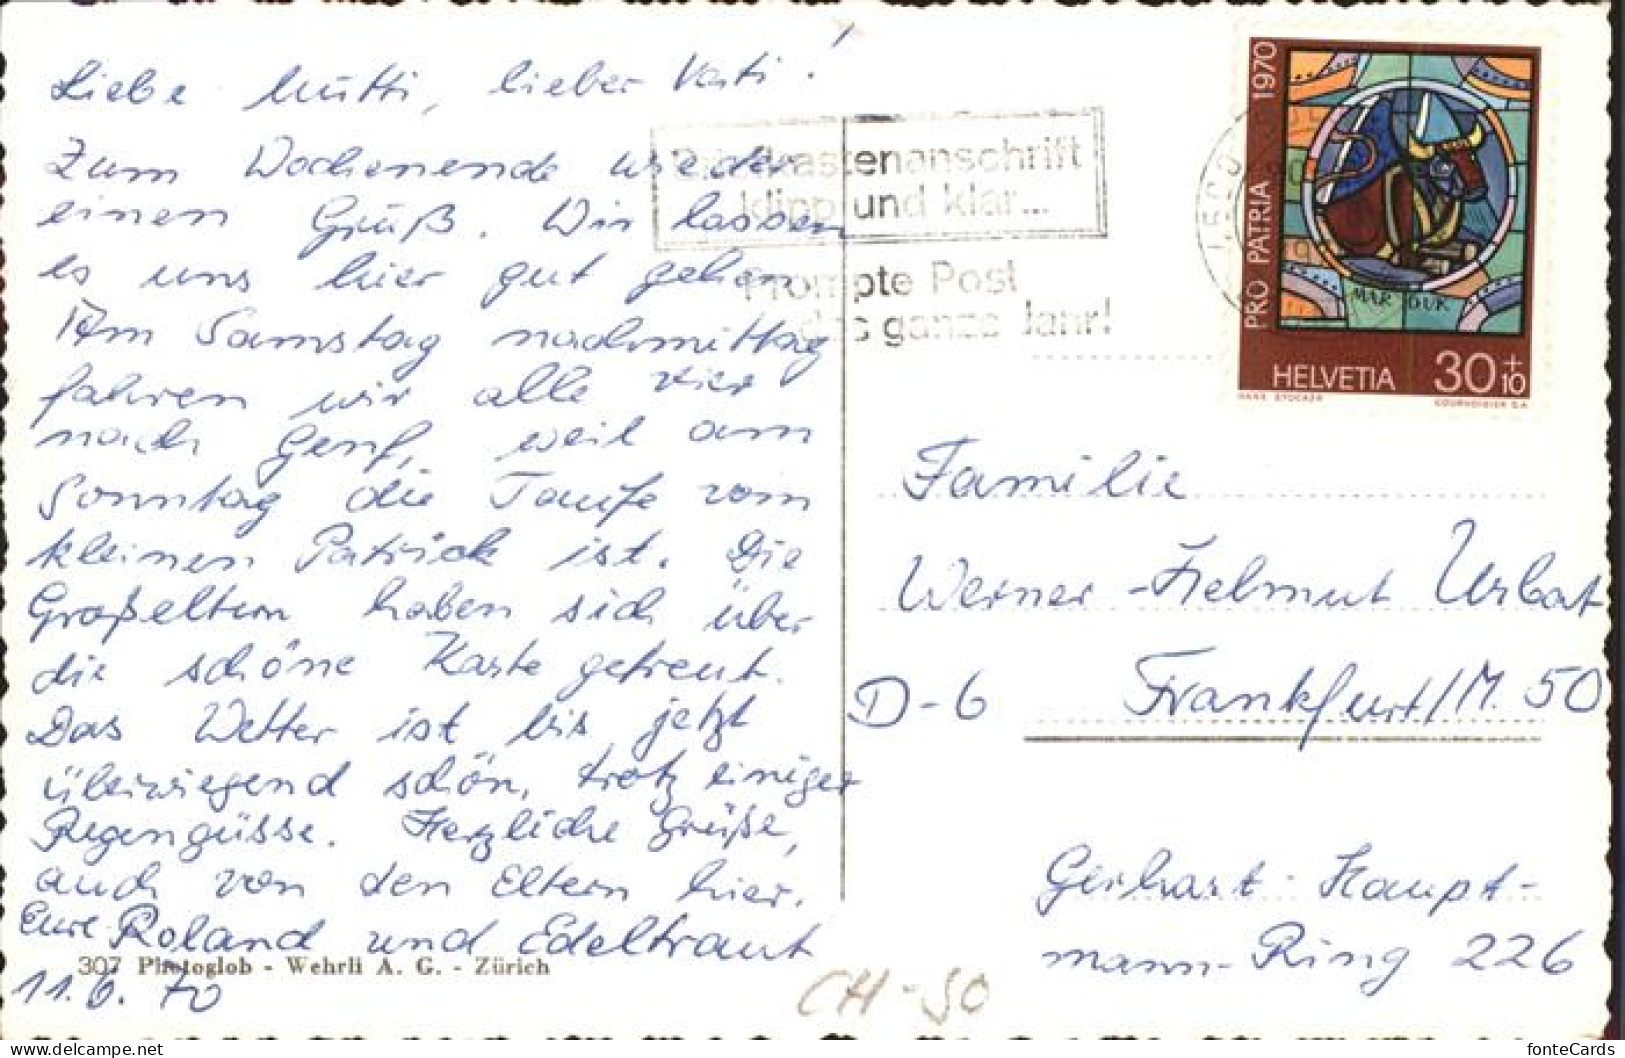 Liebe Mutti, lieber Vati!
Zum Wochenende wieder
einen Gruß. Wir lassen
es uns hier gut gehen.
Am Samstag nachmittag
fahren wir alle vier
nach Genf, weil am
Sonntag die Taufe vom
kleinen Patrick ist. Die
Großeltern haben sich über
die schöne Karte gefreut.
Das Wetter ist bis jetzt
überwiegend schön, trotz einiger
Regengüsse. Herzliche Grüße,
auch von den Eltern hier.
Eure Roland und Edeltraut
307 Photoglob - Wehrli A. G. - Zürich
11.6.70
Briefkastenanschrift
klipp und klar...
Prompte Post
das ganze Jahr!
PRO PATRIA 1970
MAR DUK
HELVETIA 30+10
HANS STOCKER
COURVOISIER S.A.
Familie
Werner-Helmut Urbat
D-6 Frankfurt/M. 50
Gerhart-Haupt-
mann-Ring 226
CH-50
fonteCards